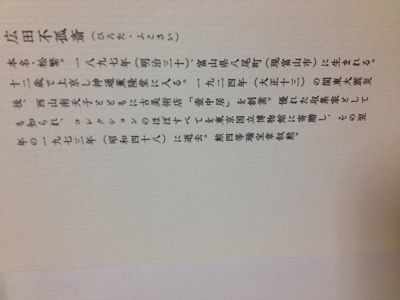 広田不孤斎（ひろた・ふこさい）
本名・松繁。一八九七年（明治三十）、富山県八尾町（現富山市）に生まれる。
十二歳で上京し神通薫隆堂に入る。一九二四年（大正十三）の関東大震災
後、西山南天子とともに古美術店「壺中居」を創業。優れた収集家として
も知られ、コレクションのほぼすべてを東京国立博物館に寄贈し、その翌
年の一九七三年（昭和四十八）に逝去。勲四等瑞宝章叙勲。